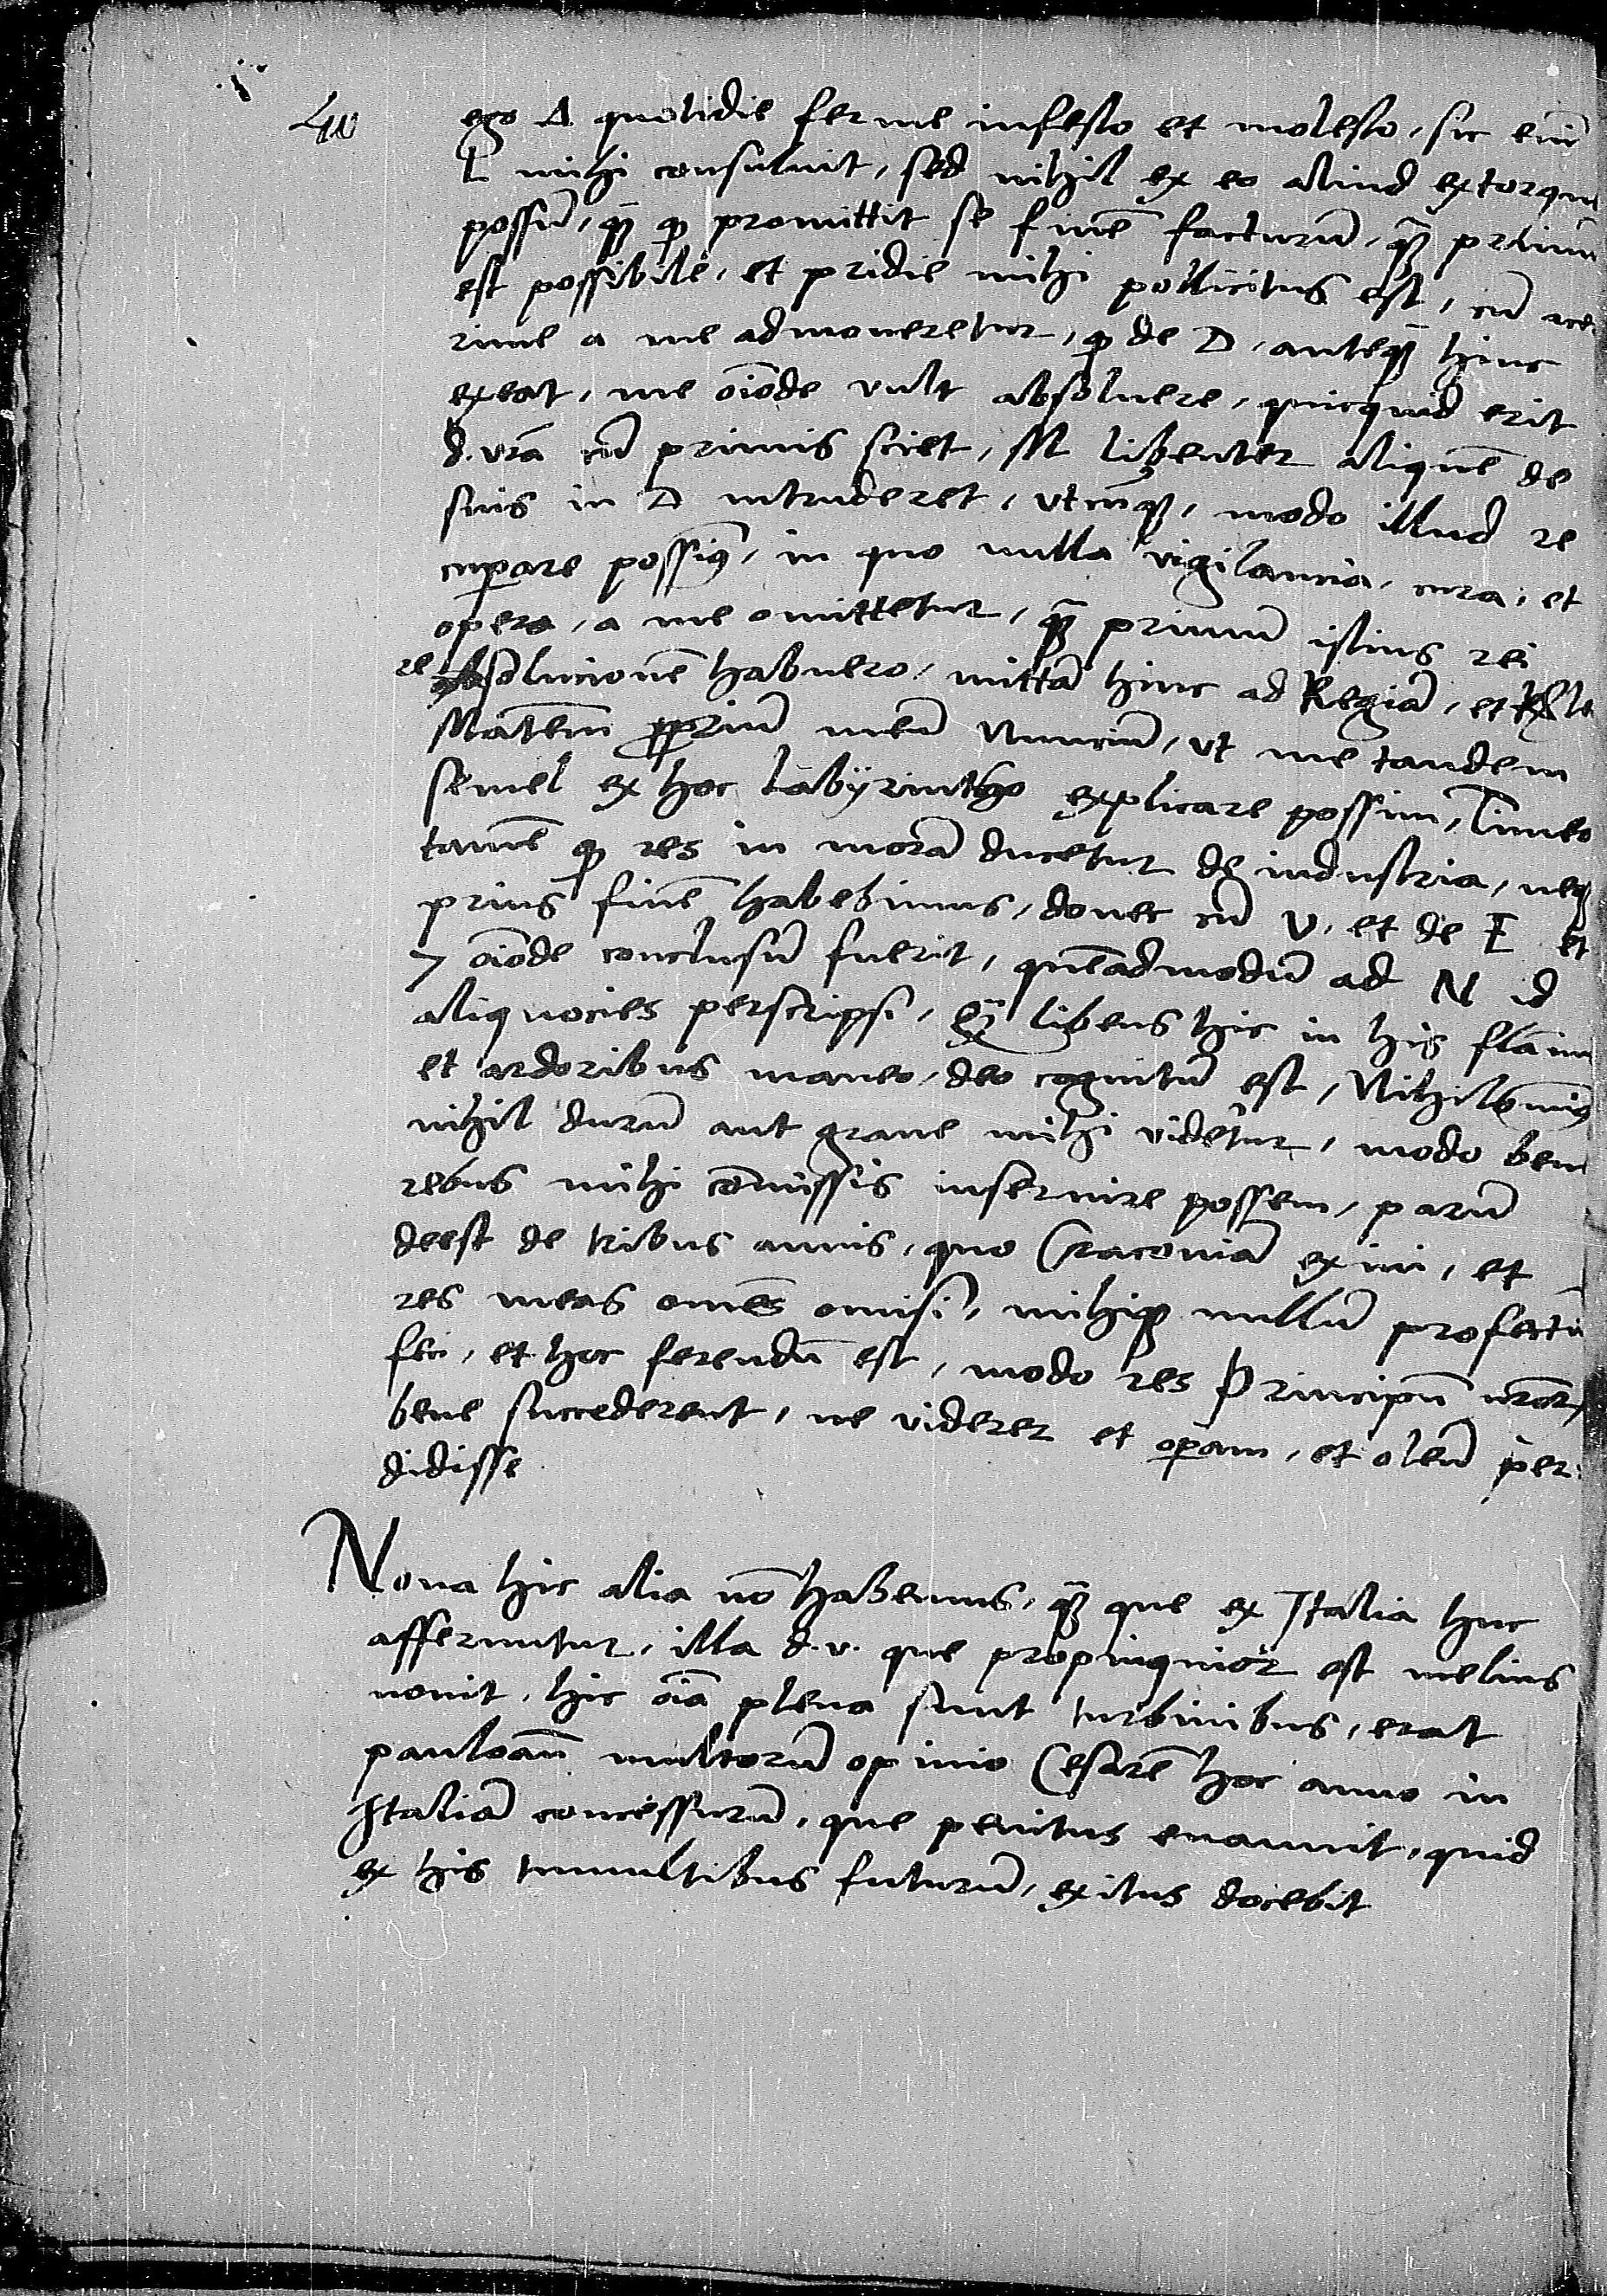 ego A quotidie ferme infesto et molesto, sic em̄
L mihi consuluit, sed nihil ex eo aliud extorqu
possu͂, qͣꝫ ꝙ promittit se fine͂ facturu͂, qͣꝫ primu͂
est possibile, et pridie mihi pollicitus est, cu͂ acer
rime a me admoneretur, ꝙ de D, anteqͣꝫ hinc
exeat, me oı͂ode vult absoluere, quicquid erit
d. vra͂ cu͂ primis sciet, M libenter alique͂ de
suis in D intruderet, utcu͂qꝫ, modo illud re
cuperare possim9, in quo nulla vigilancia, cura, et
opera, a me omittetur, qͣꝫ primum istius rei
resolucione͂ habuero, mitta͂ hinc ad Regia͂, et
Mate͂m ꝓpriu͂ meu͂ Nunciu͂, ut me tandem
semel ex hoc labÿrintho explicare possim, Timeo
tame͂ ꝙ res in mora͂ ducetur de industria, neqꝫ
prius fine͂ habebimus, donec cu͂ V, et de E et
7 oı͂ode conclusu͂ fuerit, que͂admodu͂ ad N id
aliquocies perscripsi, Qͣꝫ libens hic in his fla͂m
et ardoribus maneo, deo cognitu͂ est, Nihilomin9
nihil duru͂ aut graue mihi videtur, modo bene
rebus mihi co͂missis inseruire possem, paru͂
deest de tribus annis, quo Cracouia͂ exiui, et
res meas om͂es omisi, mihiqꝫ nullu͂ profectu͂
feci, et hoc ferendu͂ est, modo res Principu͂ nr͂or
bene succederent, ne viderer et operam, et oleu͂ per:
didisse
Noua hic alia no͂ habemus, qͣꝫ que ex Italia huc
afferuntur, illa d. v. que propinquior est melius
nouit, hic oı͂a plena sunt turbinibus, erat
pauloan͂ multoru͂ opinio Cesare͂ hoc anno in
Italia͂ concessuru͂, que penitus euanuit, quid
ex his tumultibus futuru͂, exitus docebit